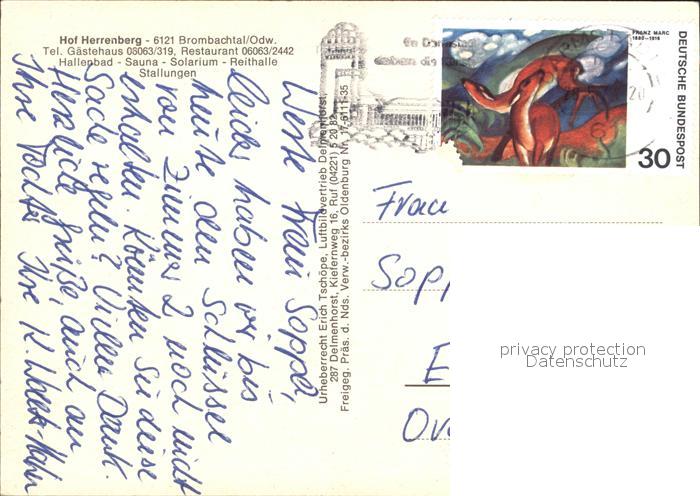 Hof Herrenberg - 6121 Brombachtal/Odw.
Tel. Gästehaus 08063/319, Restaurant 06063/2442
Hallenbad - Sauna - Solarium - Reithalle
Stallungen
Werte Frau Sopper,
leider haben wir bis
heute den Schlüssel
von Zimmer 2 noch nicht
erhalten. Könnten Sie diese
Sache regeln? Vielen Dank.
Herzliche Grüße, auch an
Ihre Tochter Ihre K.
Urheberrecht Erich Tschöpe, Luftbildvertrieb Delmenhorst
287 Delmenhorst, Kiefernweg 16, Ruf (04221) 5 20 82
Freigeg. Präs. d. Nds. Verw.-bezirks Oldenburg Nr. 17-6111-35
In Darmstadt
leben die Künste
FRANZ MARC
1880-1916
DEUTSCHE BUNDESPOST
30
Frau
Sopp
E
Ov
privacy protection
Datenschutz